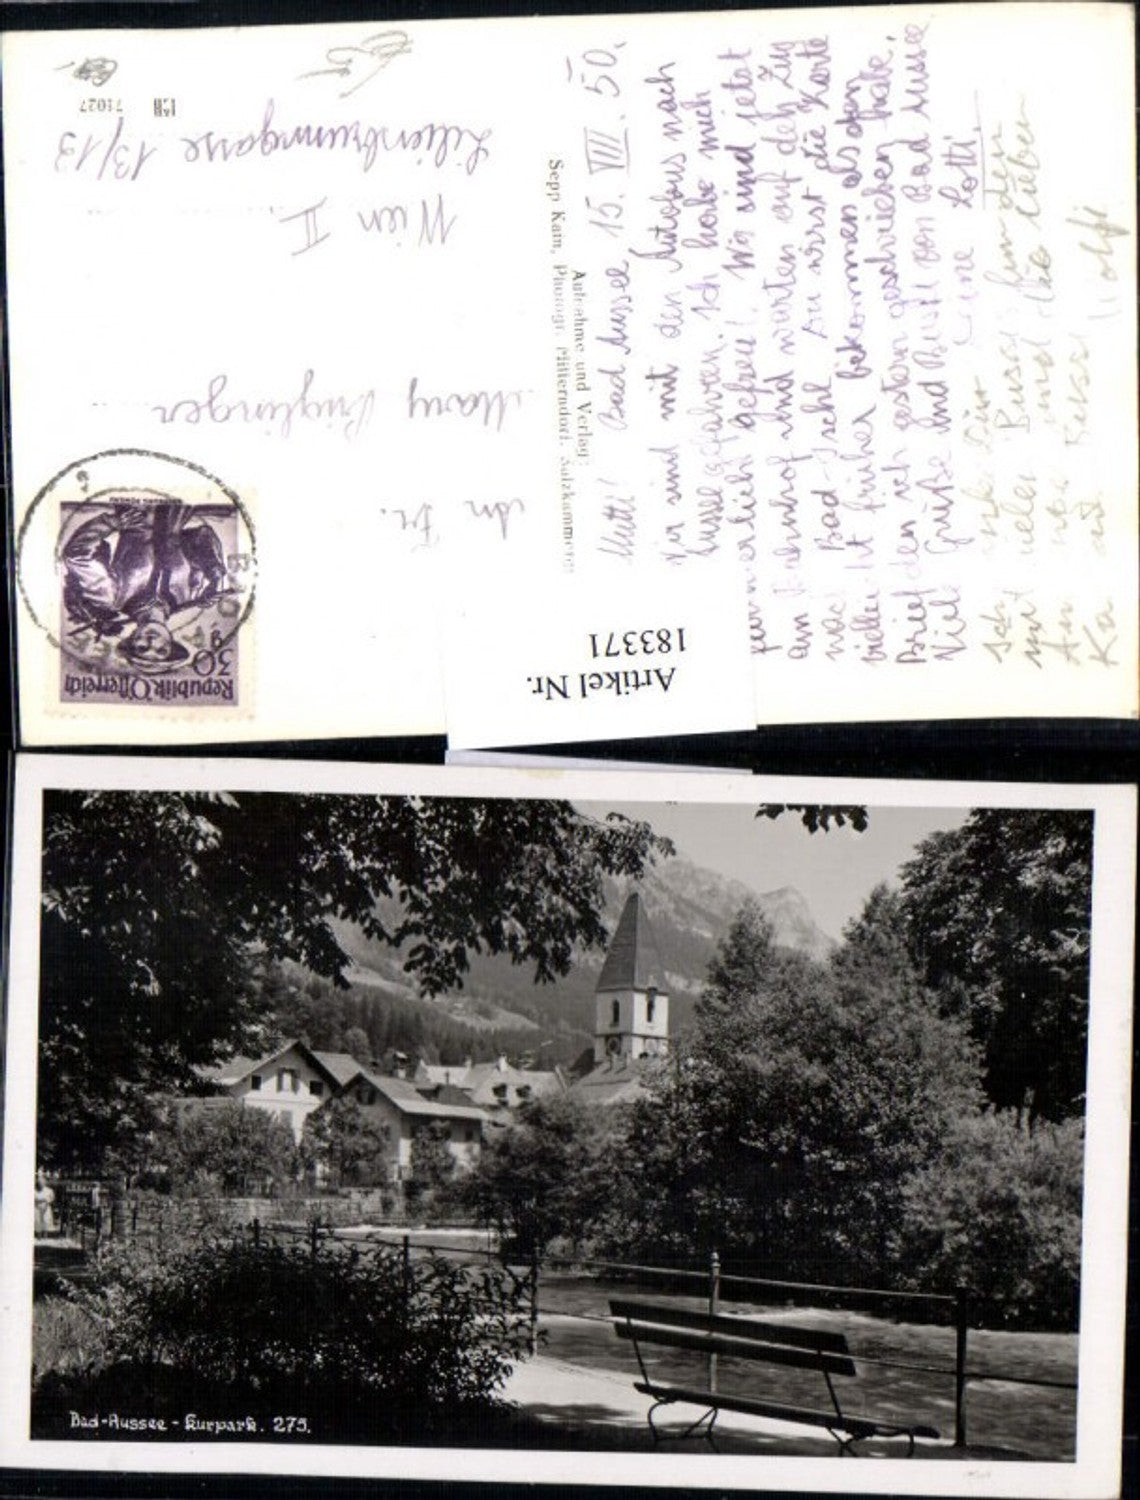 An Fr.
Mary
Wien II
Lilienbrunngasse 13/13
71027
Republik Österreich
30 g
BAD
Artikel Nr.
183371
Aufnahme und Verlag:
Sepp Kain, Photogr. Mitterndorf, Salzkammergut
Bad Aussee 15. VIII. 50.
Mutti!
Wir sind mit den Autobus nach
Aussee gefahren. Ich habe mich
gefreut. Wir sind jetzt
am Bahnhof und warten auf den Zug
nach Bad-Ischl. Du wirst die Karte
vielleicht früher bekommen als den
Brief den ich gestern geschrieben habe.
Viele Grüße und Bussi von Bad Aussee
Deine Lotti.
Ich
mit vielen Bussi
und
Bad-Aussee - Kurpark. 275.